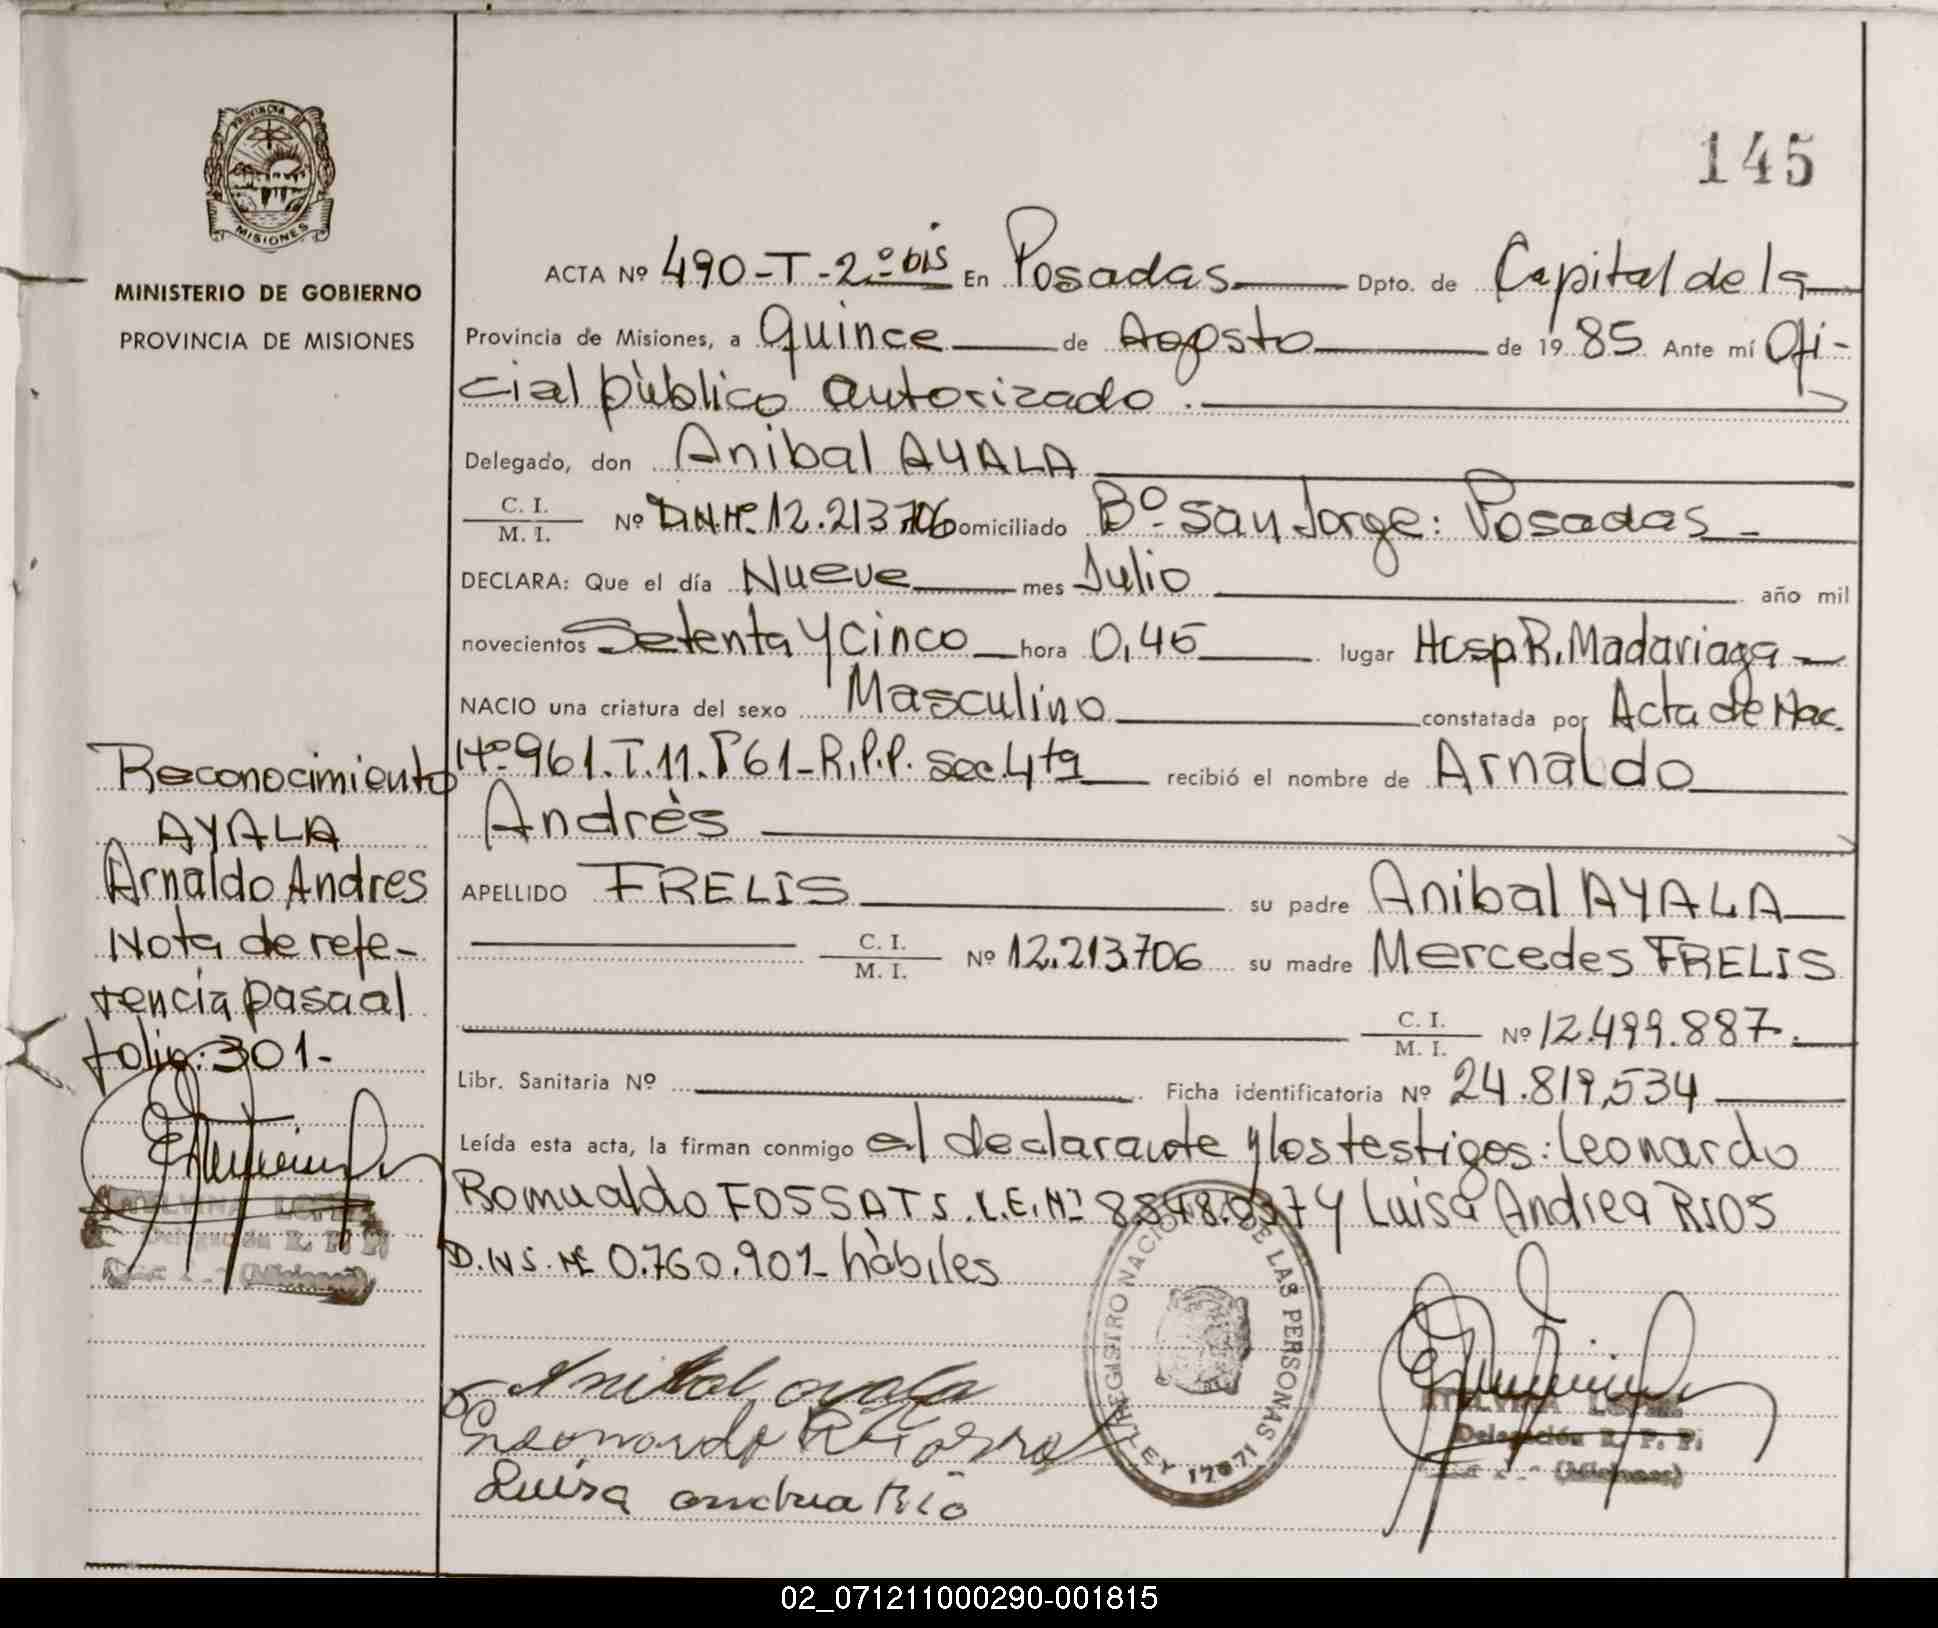 PROVINCIA DE
MISIONES
MINISTERIO DE GOBIERNO
PROVINCIA DE MISIONES
145
ACTA Nº 490-T-2º bis En Posadas Dpto. de Capital de la
Provincia de Misiones, a Quince de Agosto de 1985 Ante mí Ofi-
cial pùblico autorizado.
Delegado, don Anibal AYALA
C. I.
M. I. Nº D.N.Nº 12.213706 Domiciliado Bº San Jorge: Posadas -
DECLARA: Que el día Nueve mes Julio año mil
novecientos Setenta y cinco hora 0,45 lugar Hosp R. Madariaga
NACIO una criatura del sexo Masculino constatada por Acta de Nac.
Nº 961.T.11.F61-R.P.P. sec. 4ta recibió el nombre de Arnaldo
Andrès
APELLIDO FRELIS su padre Anibal AYALA
C. I.
M. I. Nº 12.213.706 su madre Mercedes FRELIS
C. I.
M. I. Nº 12.499.887.
Libr. Sanitaria Nº Ficha identificatoria Nº 24.819,534
Leída esta acta, la firman conmigo el declarante y los testigos: Leonardo
Romualdo FOSSATS. L.E. Nº y Luisa Andrea RIOS
Nº 0.760.901- hàbiles
Reconocimiento
AYALA
Arnaldo Andres
Nota de refe-
rencia pasa al
folio: 301-
LOPEZ
Delegación R. P. P.
(Misiones)
Anibal ayala
Leonardo R
Luisa andrea Rio
REGISTRO NACIONAL DE LAS PERSONAS
LEY 17671
LOPEZ
Delegación R. P. P.
(Misiones)
02_071211000290-001815